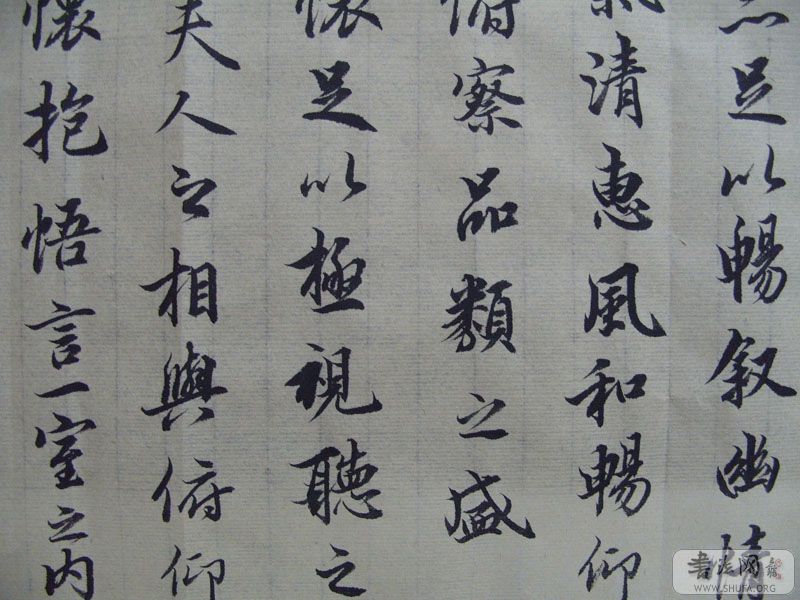 亦足以暢叙幽情
氣清惠風和暢仰
俯察品類之盛
懷足以極視聽之
夫人之相與俯仰
懷抱悟言一室之内
書法网
WWW.SHUFA.ORG